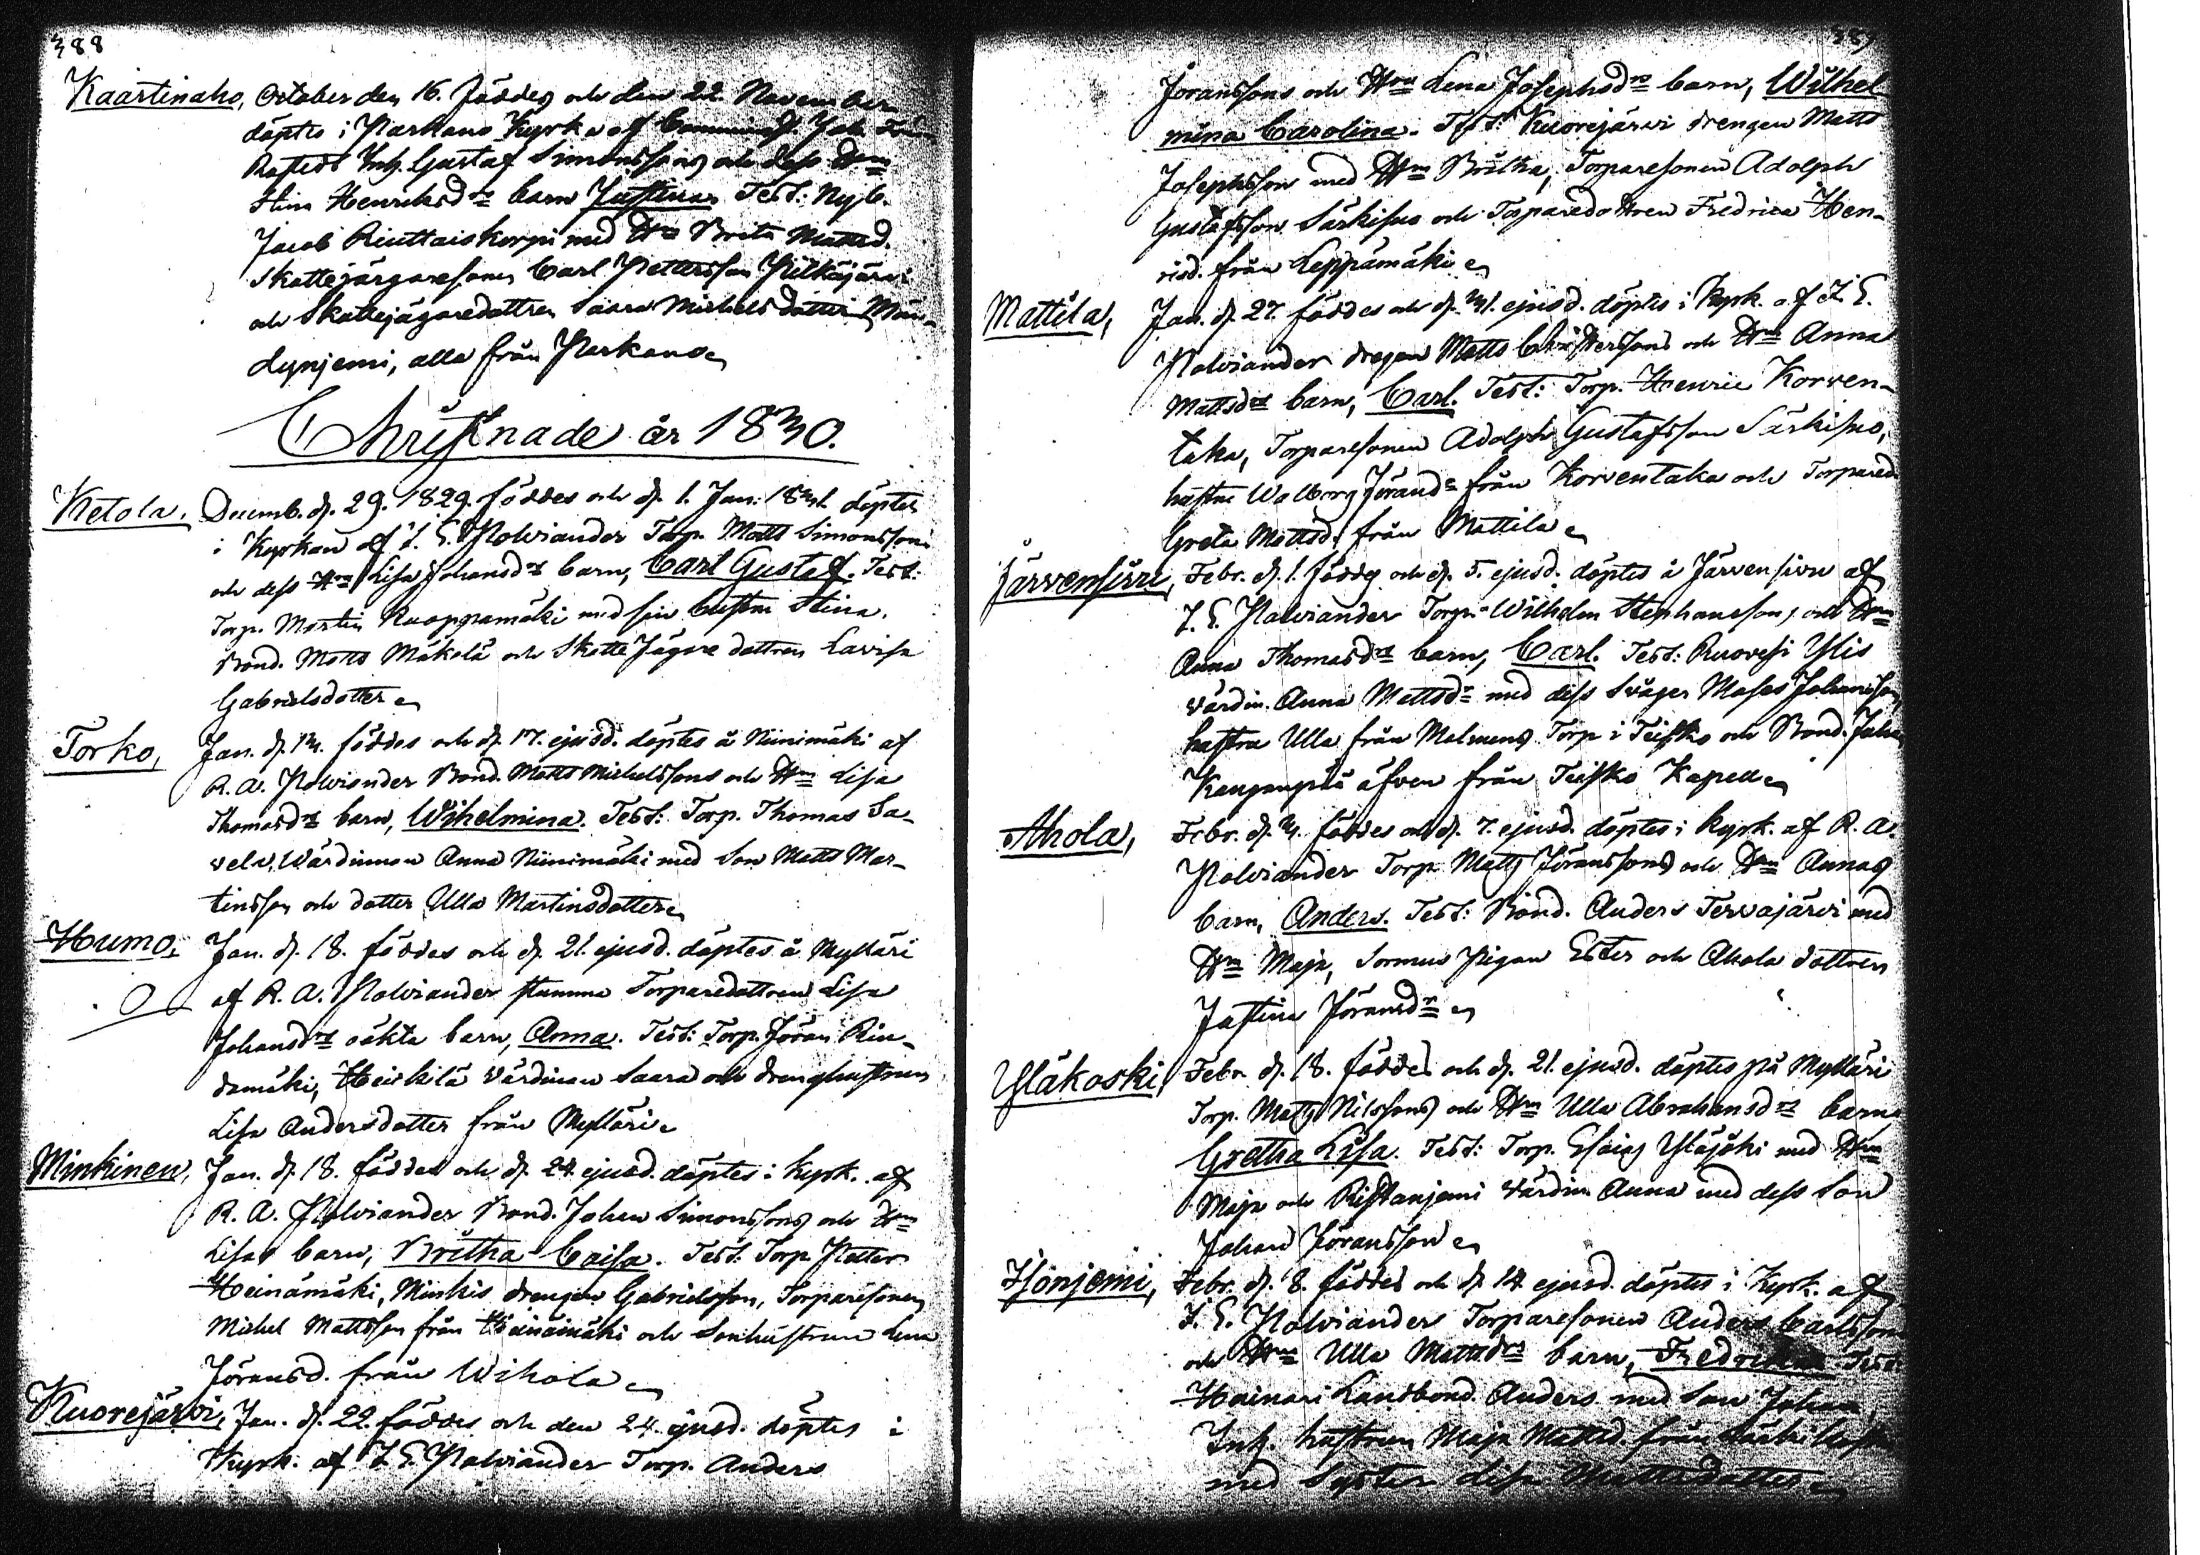 388
Kaartinaho, October den 16. föddes och den 22. November
döptes i Parkano Kyrka af
Inh. Gustaf Simonssons och dess H:u
Stina Henriksd:rs barn Justina. Test: Nyb.
Jacob Riuttaiskorpi med H:u Brita Mattsd.
Skattejägaresonen Carl Pettersson Pitkäjärvi
och Skattejägaredottren Saara Michelsdotter Män-
tyniemi, alla från Parkano
Christnade år 1830.
Ketola. Decemb. d. 29. 1829. föddes och d. 1. Jan. döptes
i Kyrkan af J. E. Palviander Torp. Matts Simonssons
och dess H:u Lisa Johansd:rs barn, Carl Gustaf. Test:
Torp. Martin Kaappamäki med sin hustru Stina.
Bond. Matts Mäkelä och SkatteJägare dottren Lovisa
Gabrielsdotter
Torko, Jan. d. 13. föddes och d. 17. ejusd. döptes å Niinimäki af
R. A. Palviander Bond. Matts Michelssons och H:u Lisa
Thomasd:rs barn, Wihelmina. Test: Torp. Thomas Sa-
vela, Wärdinnan Anna Niinimäki med Son Matts Mar-
tinsson och dotter Ulla Martinsdotter
Humo. Jan. d. 18. föddes och d. 21. ejusd. döptes å Mylläri
af R. A. Palviander Torparedottren Lisa
Johansd:rs oäkta barn, Anna. Test: Torp. Jöran Rin-
damäki, Heickilä Värdinnan Saara och drenghustrun
Lisa Andersdotter från Mylläri
Minkinen, Jan. d. 18. föddes och d. 24. ejusd. döptes i Kyrk. af
R. A. Palviander Bond. Johan Simonssons och H:u
Lisas barn, Britha Caisa. Test: Torp. Petter
Heinämäki, Minkis drengen Gabrielsson, Torparesonen
Michel Mattsson från Heinämäki och Sonhustrun Lena
Jöransd. från Wihola
Kuorejärvi, Jan. d. 22. föddes och den 24. ejusd. döptes i
Kyrk. af J. E. Palviander Torp. Anders
389
Jöranssons och H:u Lena Josephsd:rs barn, Wilhel
mina Carolina. Test: Kuorejärvi drengen Matts
Josephsson med H:u Britha, Torparesonen Adolph
Gustafsson Särkisuo och Torparedottren Fredrica Hen-
ricsd. från Leppämäki
Mattila, Jan. d. 27. föddes och d. 31. ejusd. döptes i Kyrk. af J. E.
Palviander drengen Matts Christerssons och H:u Anna
Mattsd:rs barn, Carl. Test: Torp. Henric Korven-
taka, Torparesonen Adolph Gustafsson Särkisuo,
hustru Walborg Jörand:r från Korventaka och Torpared.
Greta Mattsd. från Mattila
Järvensivu, Febr. d. 1. föddes och d. 5. ejusd. döptes å Järvensivu af
J. E. Palviander Torp. Wilhelm Stephanssons och H:u
Anna Thomasd:rs barn, Carl. Test: Ruovesi Ylis
värdin. Anna Mattsd:r med dess Svåger Moses Johansson
hustru Ulla från Malmens Torp i Teisko och Bond. Johan
Kangenpää äfven från Teisko Kapell
Ahola, Febr. d. 3. föddes och d. 7. ejusd. döptes i Kyrk. af R. A.
Palviander Torp. Matts Jöranssons och H:u Annas
barn, Anders. Test: Bond. Anders Tervajärvi med
H:u Maja, Sormus Pigan Ester och Ahola dottren
Justina Jöransd:r
Yläkoski, Febr. d. 18. föddes och d. 21. ejusd. döptes på Mylläri
Torp. Matts Nilssons och H:u Ulla Abrahamsd:rs barn
Gretha Lisa. Test: Torp. Esaias Yläjoki med H:u
Maja och Ristaniemi Värdin. Anna med dess Son
Johan Jöransson
Hönjemi, Febr. d. 8. föddes och d. 14. ejusd. döptes i Kyrk. af
J. E. Palviander Torparesonen Anders Carlssons
och H:u Ulla Mattsd:rs barn, Test:
Hainari Landbond. Anders med Son Johan
Inh. hustrun Maja Mattsd. från
med Syster Lisa Mattsdotter